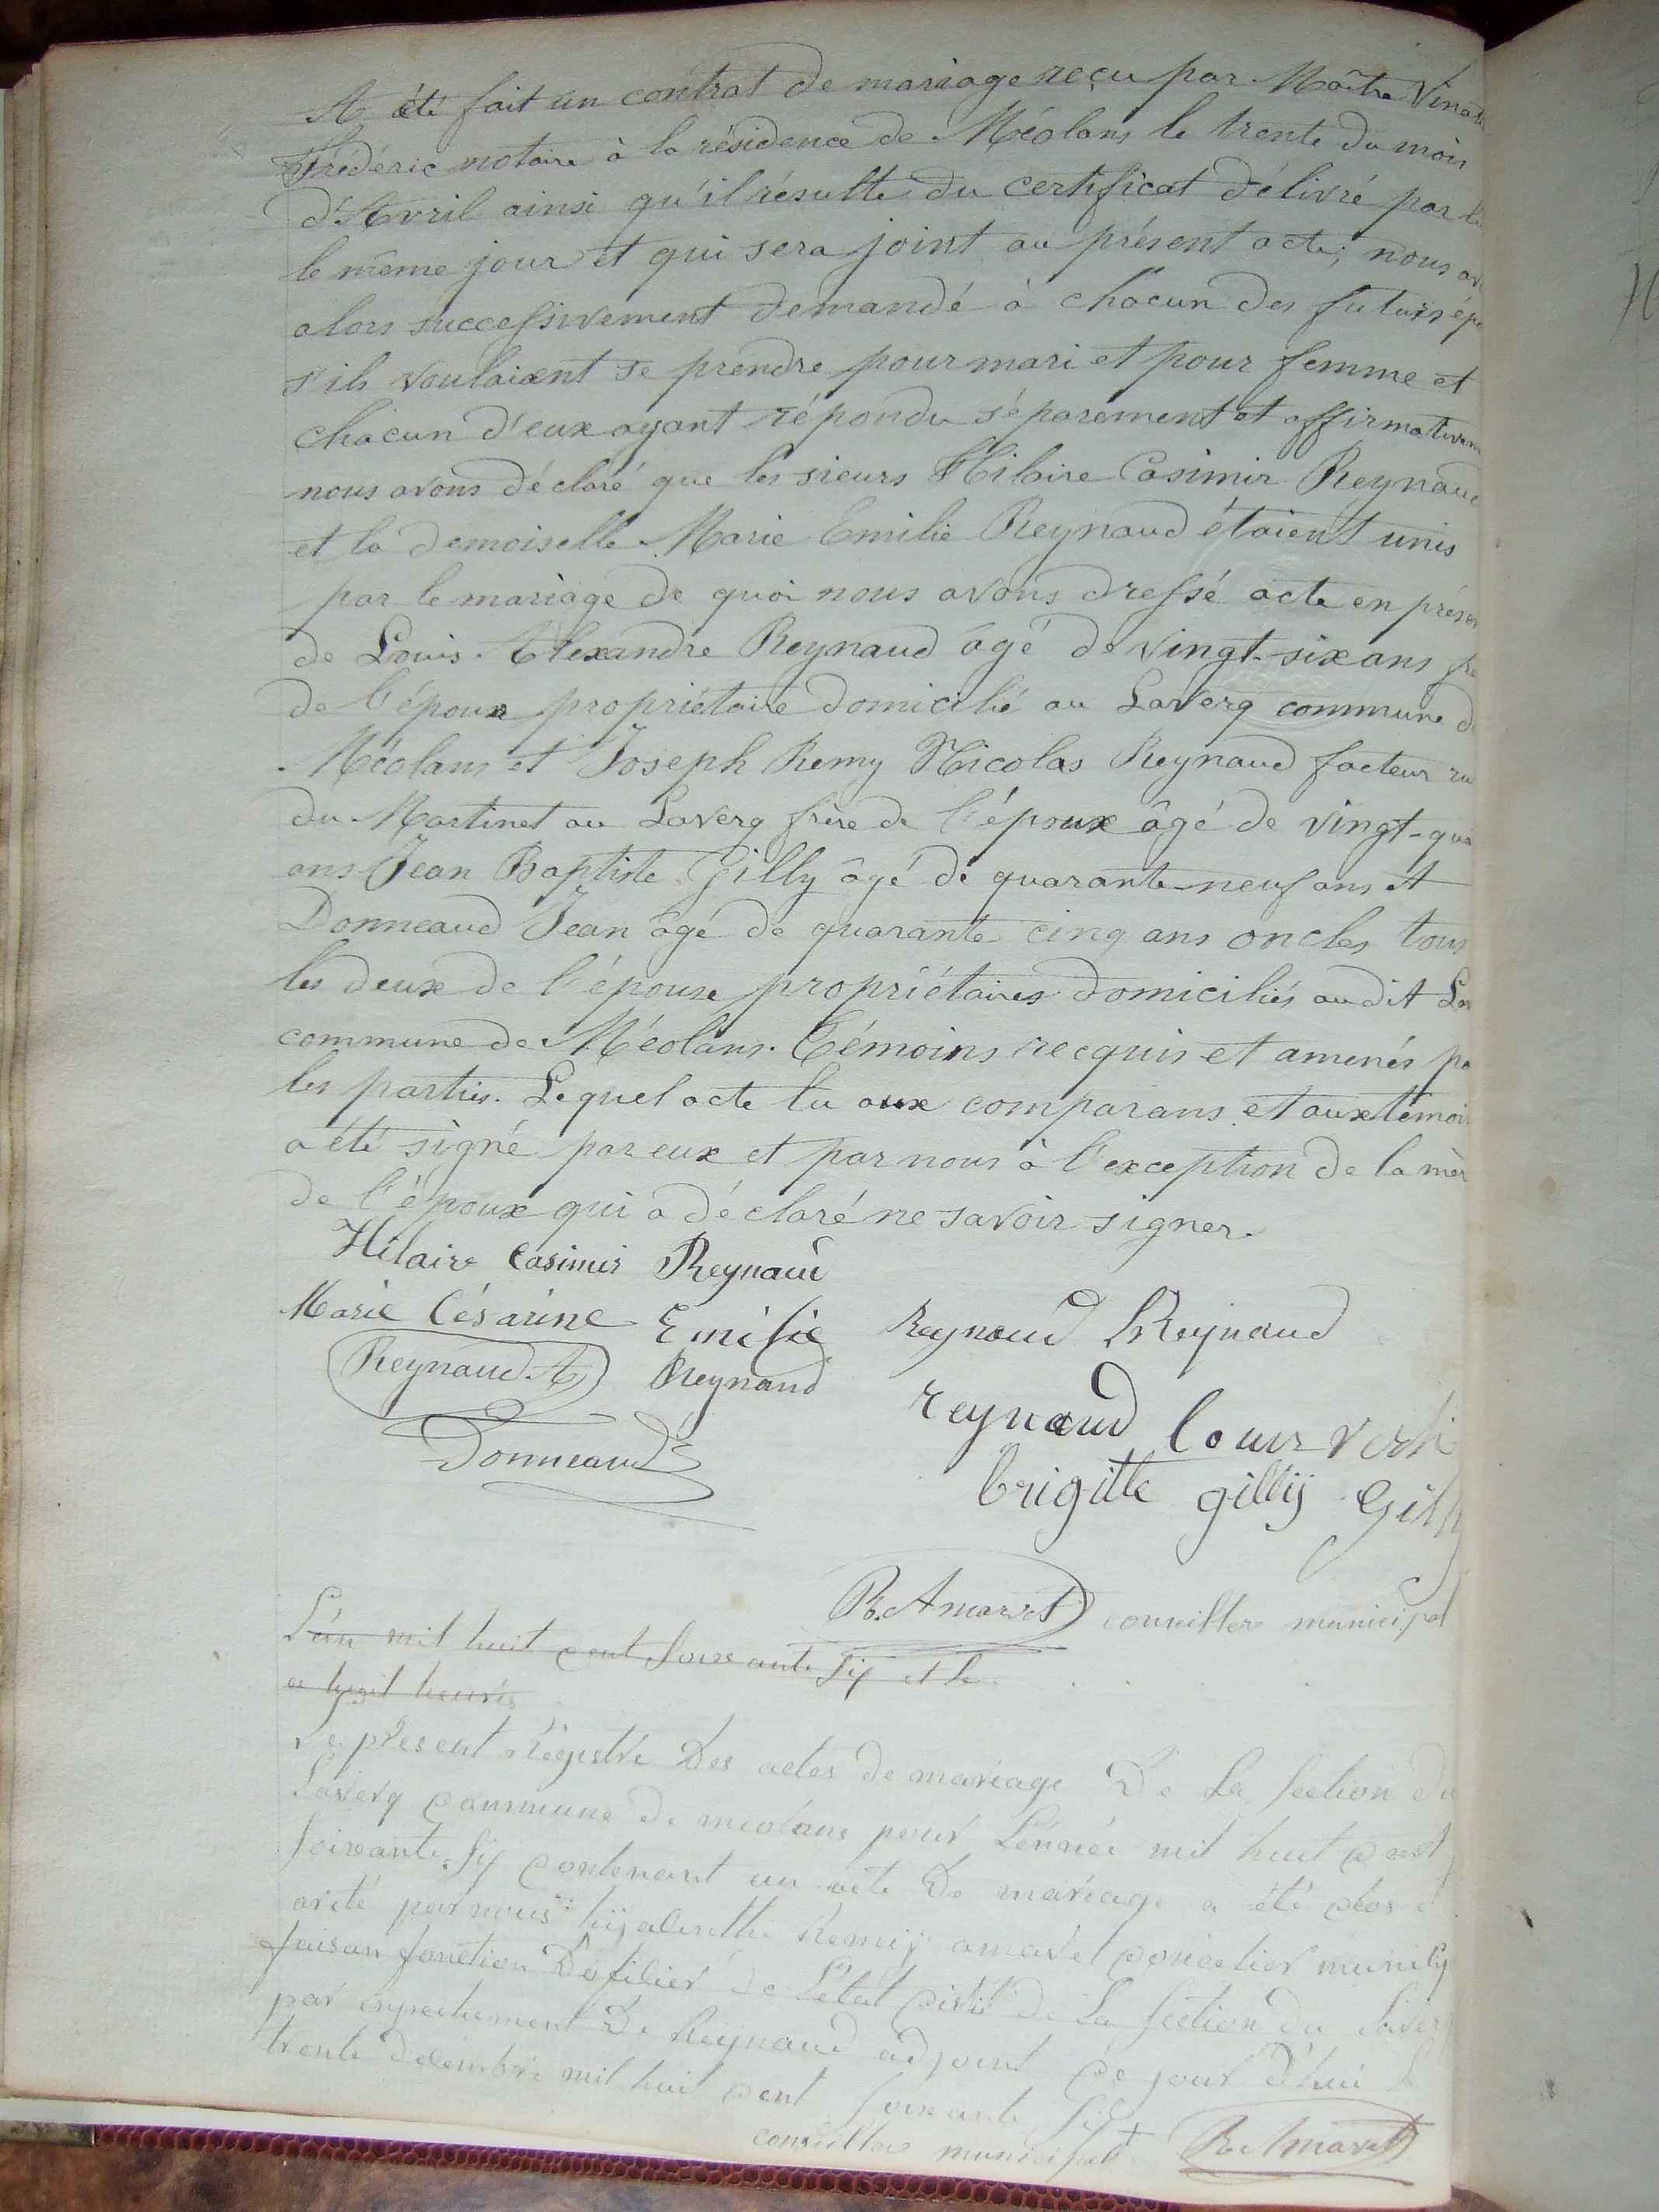 A été fait un contrat de mariage reçu par Maître
Frédéric notaire à la résidence de Méolans le trente du mois
d'Avril ainsi qu'il résulte du certificat délivré par
le même jour et qui sera joint au présent acte; nous
alors successivement demandé à chacun des futurs
s'ils voulaient se prendre pour mari et pour femme et
chacun d'eux ayant répondu séparement et
nous avons déclaré que les sieurs Hilaire Casimir Reynaud
et la demoiselle Marie Emilie Reynaud étaient unis
par le mariage de quoi nous avons dressé acte en
de Louis Alexandre Reynaud âgé de vingt-six ans
de l'époux propriétaire domicilié au Laverq commune de
Méolans et Joseph Remy Nicolas Reynaud facteur
du Martinet au Laverq frère de l'époux âgé de vingt-
ans Jean Baptiste Gilly âgé de quarante-neuf ans et
Donneaud Jean âgé de quarante cinq ans oncles tous
les deux de l'épouse propriétaires domiciliés audit
commune de Méolans. Témoins recquis et amenés
les parties. Lequel acte lu aux comparans et aux
a été signé par eux et par nous à l'exception de la
de l'époux qui a déclaré ne savoir signer.
Hilaire Casimir Reynaud
Marie Césarine Emilie Reynaud Reynaud
Reynaud A Reynaud
reynaud louis
Donneaud
brigitte gilly Gilly
R. Amavet conseiller municipal
L'an mil huit cent soixante six et le
a huit heures
Le present Régistre Des actes de mariage De La section du
Laverq commune de meolans pour L'énnée mil huit cent
soixante six contenant un acte De mariage a été clos
arété par nous hyacinthe Remij amavet
faisan fonction D'oficier De L'état civil de La section du
par enpechement De Reynaud adjoint ce jour d'hui
trente decembre mil huit cent soixante six
conseiller municipal R. Amavet